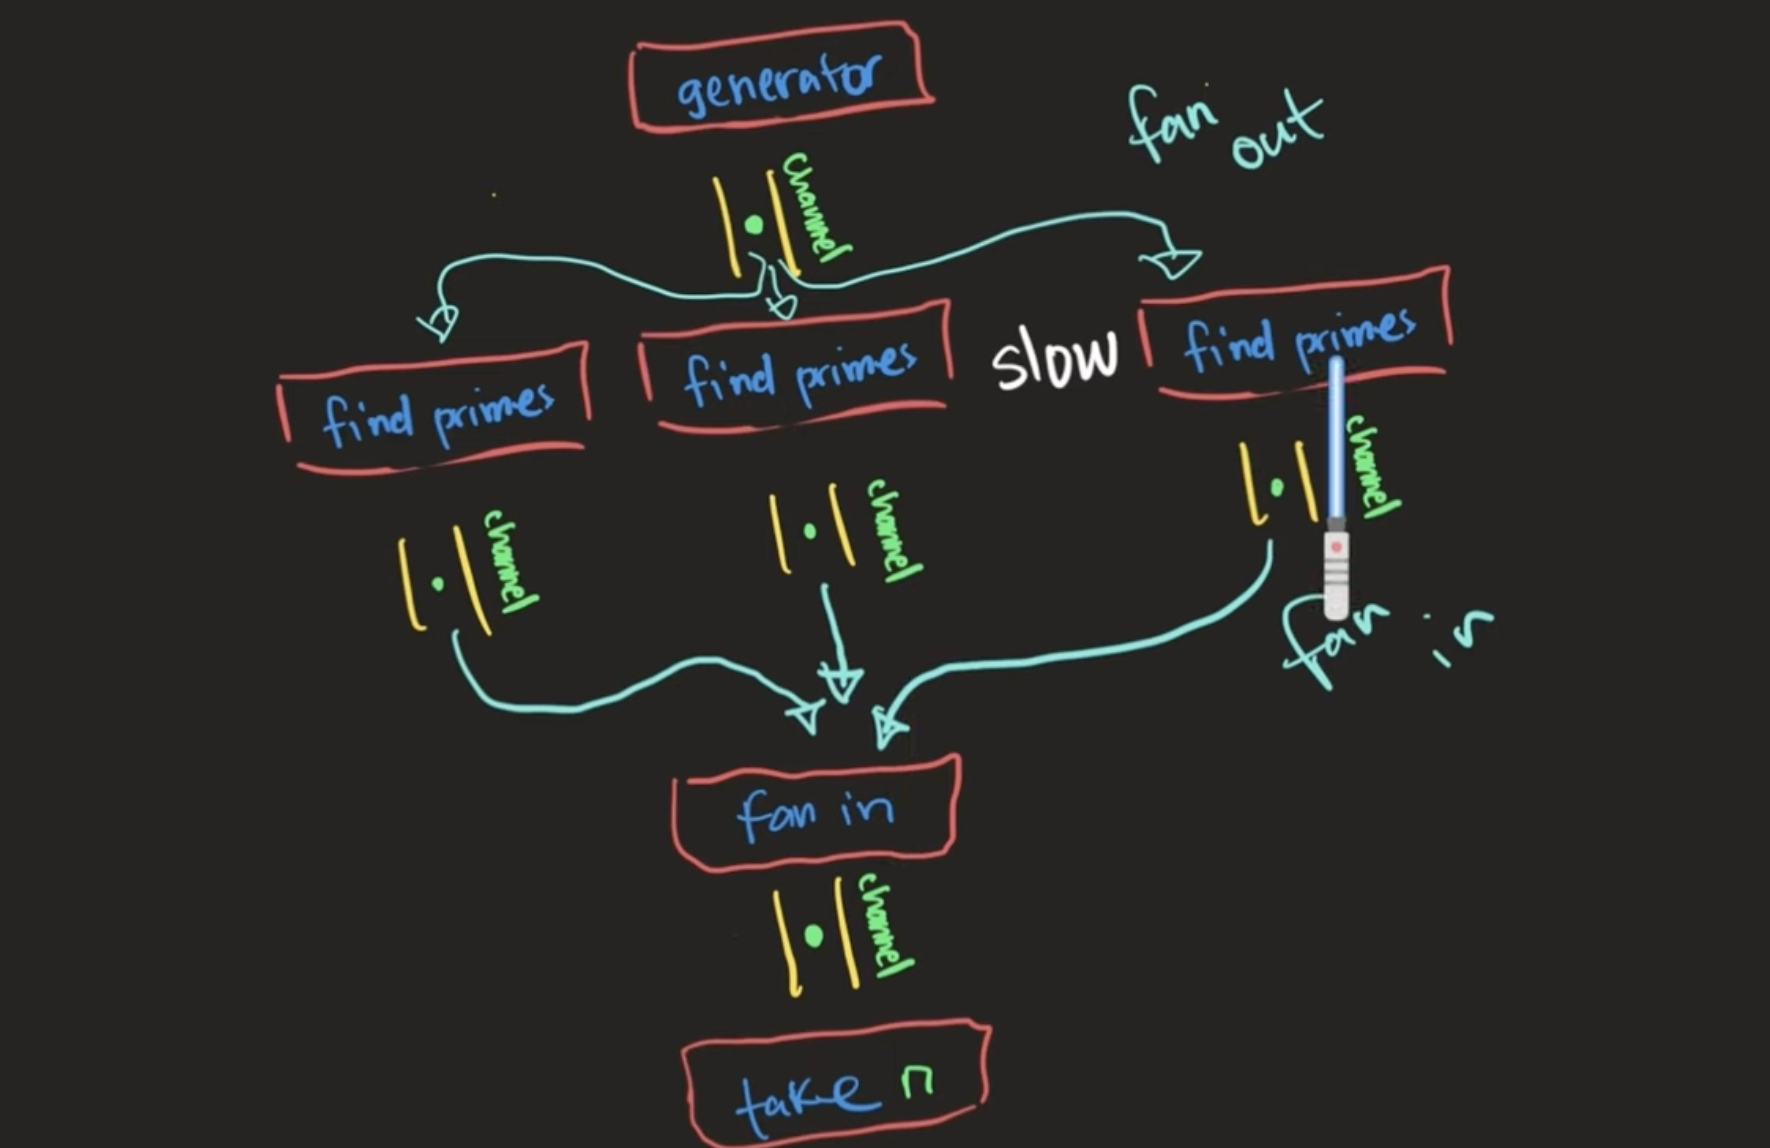 generator
fan out
channel
find primes
find primes
slow
find primes
channel
channel
channel
fan in
fan in
channel
take n